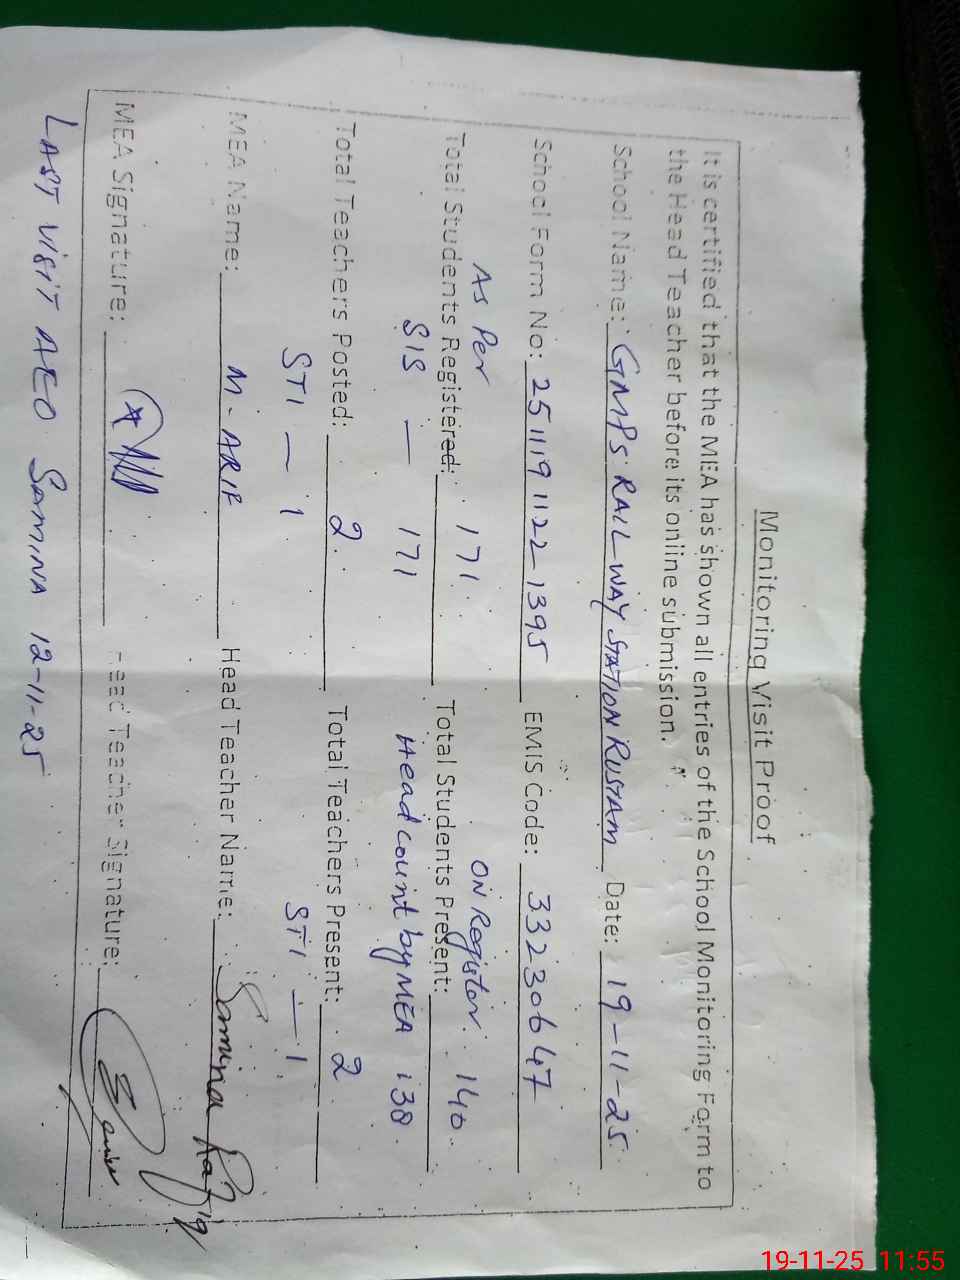 Monitoring Visit Proof
It is certified that the MEA has shown all entries of the School Monitoring Form to
the Head Teacher before its online submission.
School Name: GMPS RAILWAY STATION RUSTAM Date: 19-11-25
School Form No: 251119 1122-1395 EMIS Code: 33230647
As Per ON Register 140
Total Students Registered: 171 Total Students Present:
SIS — 171 Head count by MEA 138
Total Teachers Posted: 2 Total Teachers Present: 2
STI — 1 STI — 1
MEA Name: M. ARIF Head Teacher Name: Samina Rafiq
MEA Signature: Head Teacher Signature:
LAST VISIT AEO SAMINA 12-11-25
19-11-25 11:55